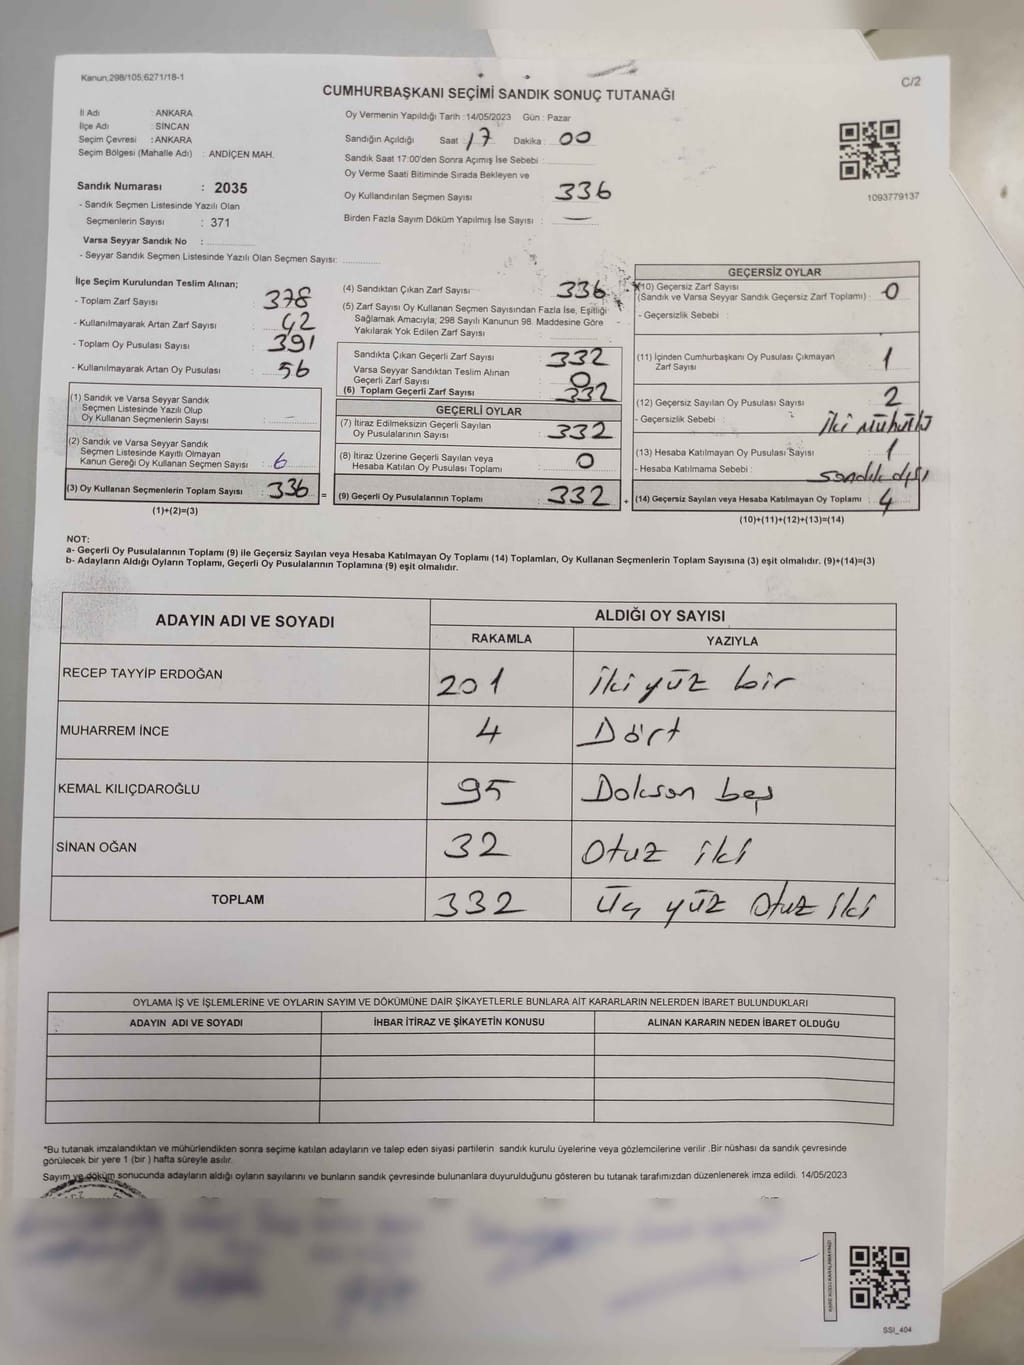 Kanun;298/105;6271/18-1
C/2
CUMHURBAŞKANI SEÇİMİ SANDIK SONUÇ TUTANAĞI
İl Adı : ANKARA
İlçe Adı : SİNCAN
Seçim Çevresi : ANKARA
Seçim Bölgesi (Mahalle Adı) : ANDİÇEN MAH.
Sandık Numarası : 2035
- Sandık Seçmen Listesinde Yazılı Olan
Seçmenlerin Sayısı : 371
Varsa Seyyar Sandık No :
- Seyyar Sandık Seçmen Listesinde Yazılı Olan Seçmen Sayısı:
Oy Vermenin Yapıldığı Tarih :14/05/2023 Gün : Pazar
Sandığın Açıldığı Saat : 17 Dakika : 00
Sandık Saat 17:00'den Sonra Açımış İse Sebebi :
Oy Verme Saati Bitiminde Sırada Bekleyen ve
Oy Kullandırılan Seçmen Sayısı : 336
Birden Fazla Sayım Döküm Yapılmış İse Sayısı : —
1093779137
İlçe Seçim Kurulundan Teslim Alınan;
- Toplam Zarf Sayısı : 378
- Kullanılmayarak Artan Zarf Sayısı : 42
- Toplam Oy Pusulası Sayısı : 391
- Kullanılmayarak Artan Oy Pusulası : 56
(1) Sandık ve Varsa Seyyar Sandık
Seçmen Listesinde Yazılı Olup
Oy Kullanan Seçmenlerin Sayısı :
(2) Sandık ve Varsa Seyyar Sandık
Seçmen Listesinde Kayıtlı Olmayan
Kanun Gereği Oy Kullanan Seçmen Sayısı : 6
(3) Oy Kullanan Seçmenlerin Toplam Sayısı : 336
(1)+(2)=(3)
=
(4) Sandıktan Çıkan Zarf Sayısı : 336
(5) Zarf Sayısı Oy Kullanan Seçmen Sayısından Fazla İse, Eşitliği
Sağlamak Amacıyla, 298 Sayılı Kanunun 98. Maddesine Göre
Yakılarak Yok Edilen Zarf Sayısı : -
Sandıkta Çıkan Geçerli Zarf Sayısı : 332
Varsa Seyyar Sandıktan Teslim Alınan
Geçerli Zarf Sayısı : 0
(6) Toplam Geçerli Zarf Sayısı : 332
GEÇERLİ OYLAR
(7) İtiraz Edilmeksizin Geçerli Sayılan
Oy Pusulalarının Sayısı : 332
(8) İtiraz Üzerine Geçerli Sayılan veya
Hesaba Katılan Oy Pusulası Toplamı : 0
(9) Geçerli Oy Pusulalarının Toplamı : 332
+
GEÇERSİZ OYLAR
(10) Geçersiz Zarf Sayısı
(Sandık ve Varsa Seyyar Sandık Geçersiz Zarf Toplamı) : 0
- Geçersizlik Sebebi :
(11) İçinden Cumhurbaşkanı Oy Pusulası Çıkmayan
Zarf Sayısı : 1
(12) Geçersiz Sayılan Oy Pusulası Sayısı : 2
- Geçersizlik Sebebi : İki Mühürlü
(13) Hesaba Katılmayan Oy Pusulası Sayısı : 1
- Hesaba Katılmama Sebebi : sandık dışı
(14) Geçersiz Sayılan veya Hesaba Katılmayan Oy Toplamı : 4
(10)+(11)+(12)+(13)=(14)
NOT:
a- Geçerli Oy Pusulalarının Toplamı (9) ile Geçersiz Sayılan veya Hesaba Katılmayan Oy Toplamı (14) Toplamları, Oy Kullanan Seçmenlerin Toplam Sayısına (3) eşit olmalıdır. (9)+(14)=(3)
b- Adayların Aldığı Oyların Toplamı, Geçerli Oy Pusulalarının Toplamına (9) eşit olmalıdır.
ADAYIN ADI VE SOYADI
ALDIĞI OY SAYISI
RAKAMLA YAZIYLA
RECEP TAYYİP ERDOĞAN 201 iki yüz bir
MUHARREM İNCE 4 Dört
KEMAL KILIÇDAROĞLU 95 Doksan beş
SİNAN OĞAN 32 Otuz iki
TOPLAM 332 Üç yüz Otuz iki
OYLAMA İŞ VE İŞLEMLERİNE VE OYLARIN SAYIM VE DÖKÜMÜNE DAİR ŞİKAYETLERLE BUNLARA AİT KARARLARIN NELERDEN İBARET BULUNDUKLARI
ADAYIN ADI VE SOYADI İHBAR İTİRAZ VE ŞİKAYETİN KONUSU ALINAN KARARIN NEDEN İBARET OLDUĞU
*Bu tutanak imzalandıktan ve mühürlendikten sonra seçime katılan adayların ve talep eden siyasi partilerin sandık kurulu üyelerine veya gözlemcilerine verilir .Bir nüshası da sandık çevresinde
görülecek bir yere 1 (bir ) hafta süreyle asılır.
Sayım ve döküm sonucunda adayların aldığı oyların sayılarını ve bunların sandık çevresinde bulunanlara duyurulduğunu gösteren bu tutanak tarafımızdan düzenlenerek imza edildi. 14/05/2023
SSİ_404